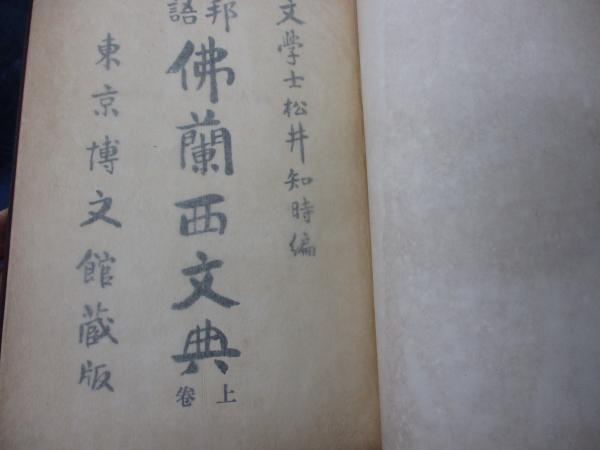 文學士松井知時編
邦語
佛蘭西文典
上卷
東京博文館蔵版